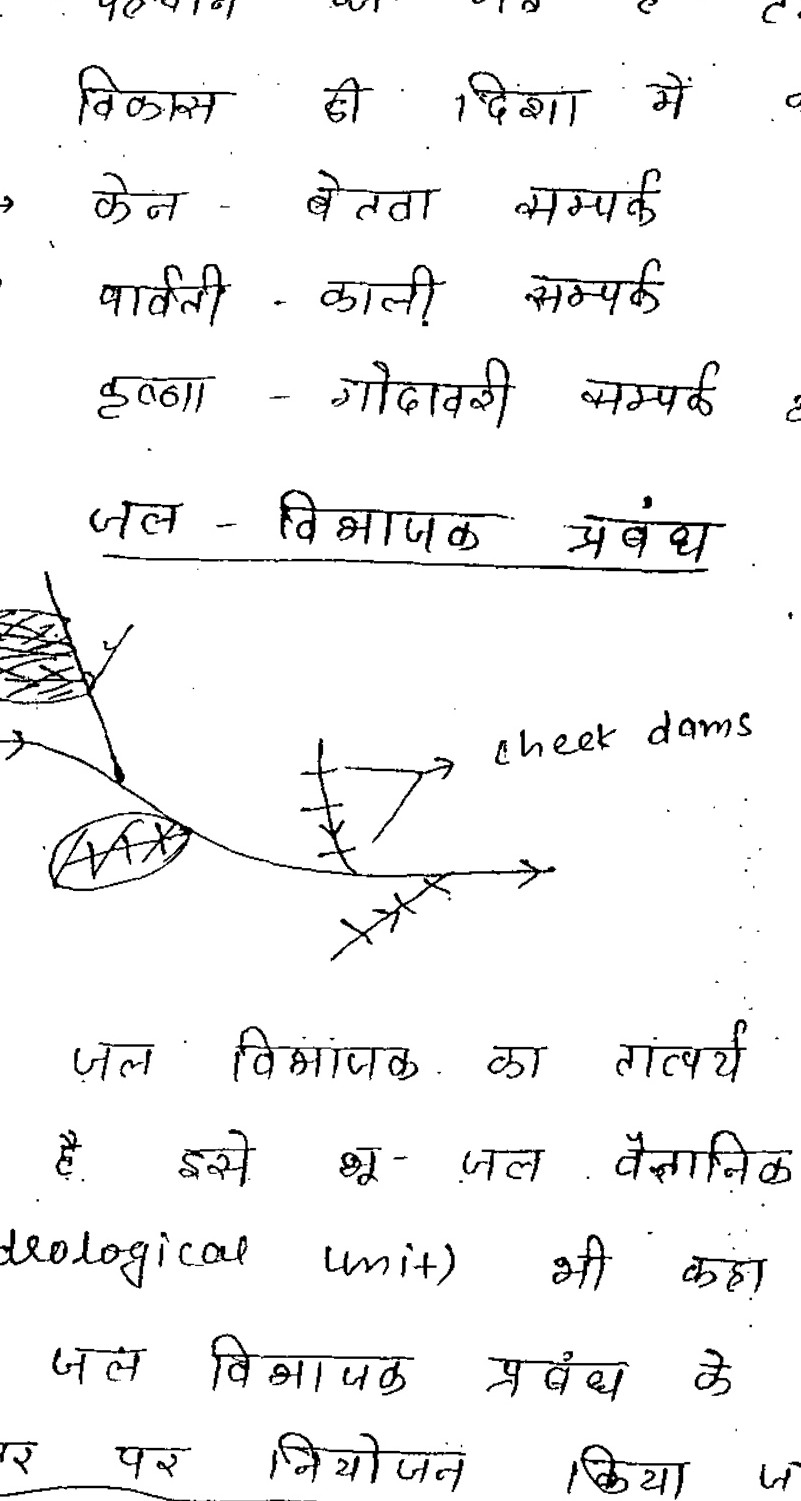 विकास की दिशा में
→ केन - बेतवा सम्पर्क
पार्वती - काली सम्पर्क
कृष्णा - गोदावरी सम्पर्क
जल - विभाजक प्रबंध
check dams
जल विभाजक का तात्पर्य
है इसे भू - जल वैज्ञानिक
unit) भी कहा
जल विभाजक प्रबंध के
पर नियोजन किया